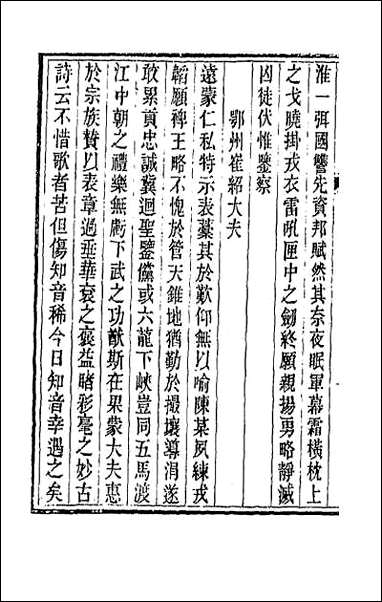 淮一弭國讐先資邦賦然其奈夜眠軍幕霜橫枕上
之戈曉掛戎衣雷吼匣中之劒終願親揚勇略靜滅
凶徒伏惟鑒察
鄂州崔紹大夫
遠蒙仁私特示表藁其於歎仰無以喻陳某夙練戎
韜願稗王略不愧於管天錐地猶勤於撮壤導涓遂
敢累貢忠誠冀迴聖鑒儻或六龍下峽豈同五馬渡
江中朝之禮樂無虧下武之功猷斯在果蒙大夫惠
於宗族贊以表章過垂華袞之褒益睹彩毫之妙古
詩云不惜歌者苦但傷知音稀今日知音幸遇之矣